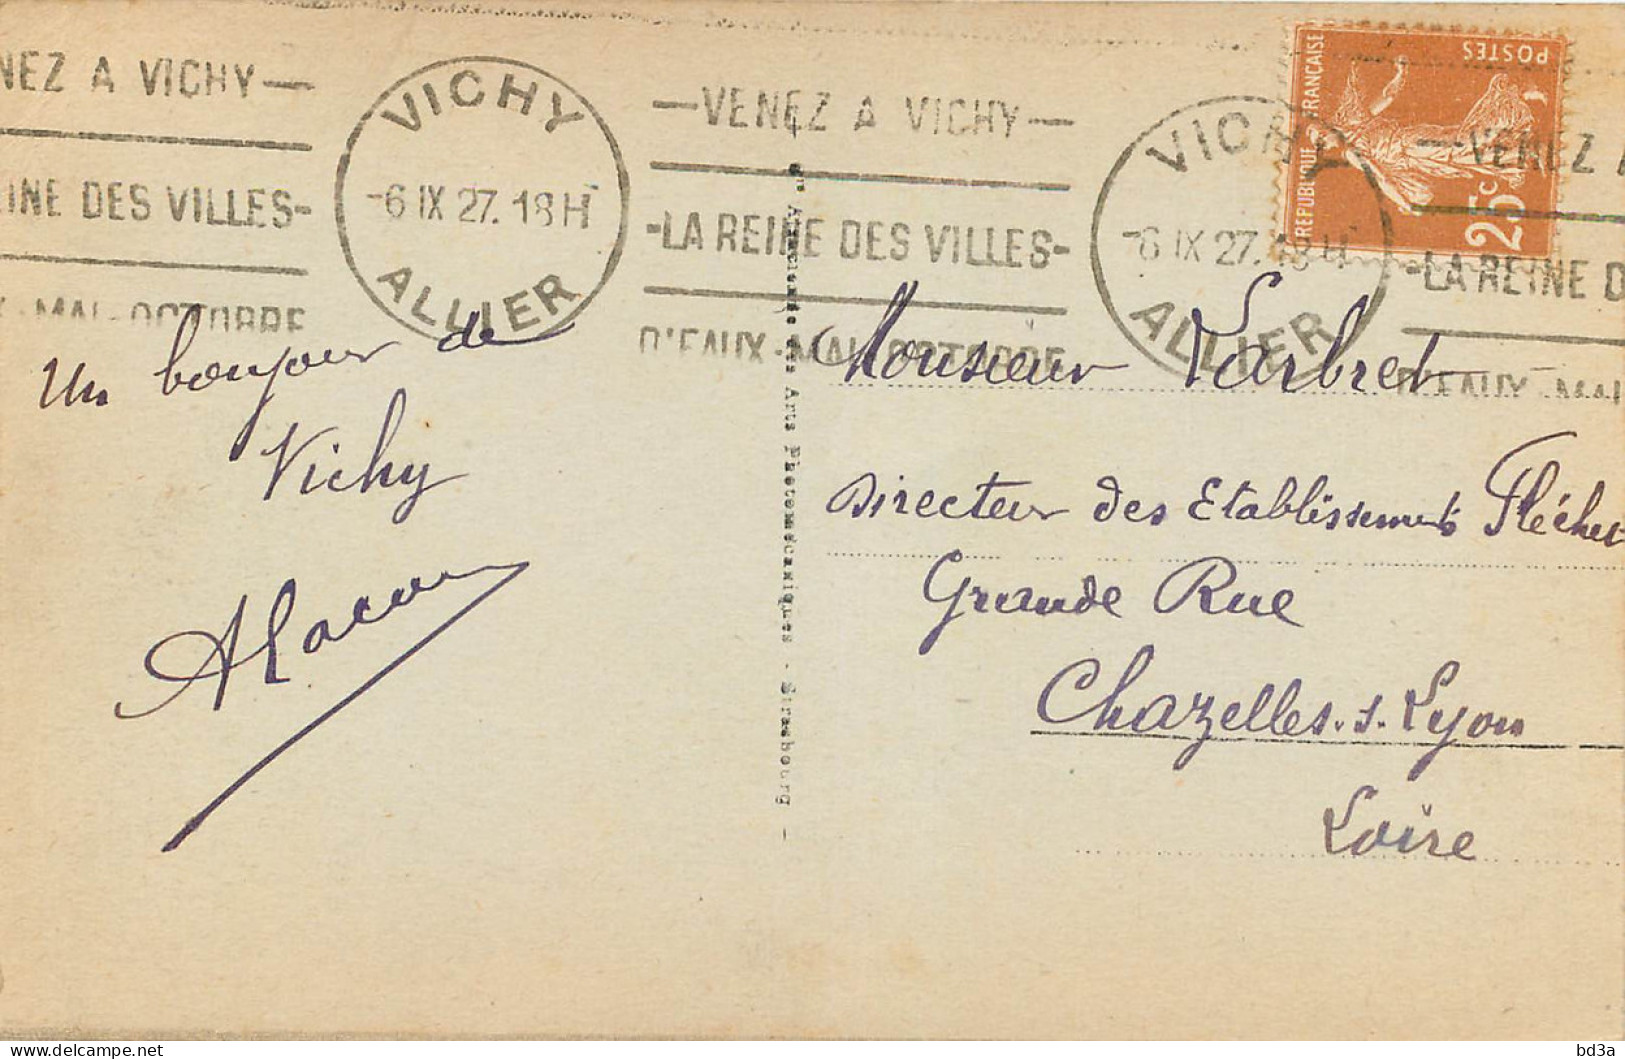 NEZ A VICHY —
EINE DES VILLES-
X · MAI - OCTOBRE
VICHY
-6 IX 27. 18H
ALLIER
— VENEZ A VICHY —
-LA REINE DES VILLES-
D'EAUX · MAI - OCTOBRE
VICHY
-6 IX 27. 18H
ALLIER
— VENEZ A
-LA REINE D
D'EAUX · MAI
REPUBLIQUE FRANÇAISE
POSTES
25c
Un bonjour de
Vichy
Cie Alsacienne des Arts Photomécaniques - Strasbourg -
Monsieur Larbret
Directeur des Etablissements Fléchet
Grande Rue
Chazelles. s. Lyon
Loire
bd3a